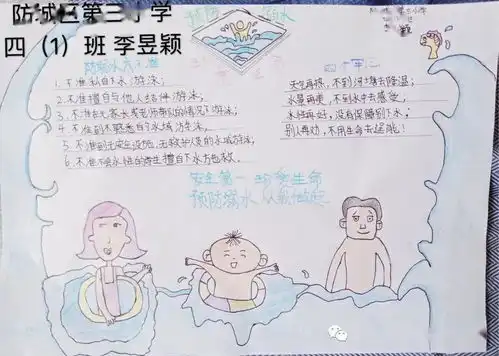 防城区第三小学
四（1）班 李昱颖
防溺水六不准
1.不准私自下水游泳；
2.不准擅自与他人结伴游泳；
3.不准在无家长或老师带领的情况下游泳；
4.不准到不熟悉的水域游泳；
5.不准到无安全设施、无救护人员的水域游泳；
6.不准不会水性的学生擅自下水施救。
四个牢记
天气再热，不到河塘去降温；
水景再美，不到水中去感受；
水性再好，没有保障别下水；
别人再劝，不用生命去逞能！
安全第一 珍爱生命
预防溺水 从我做起